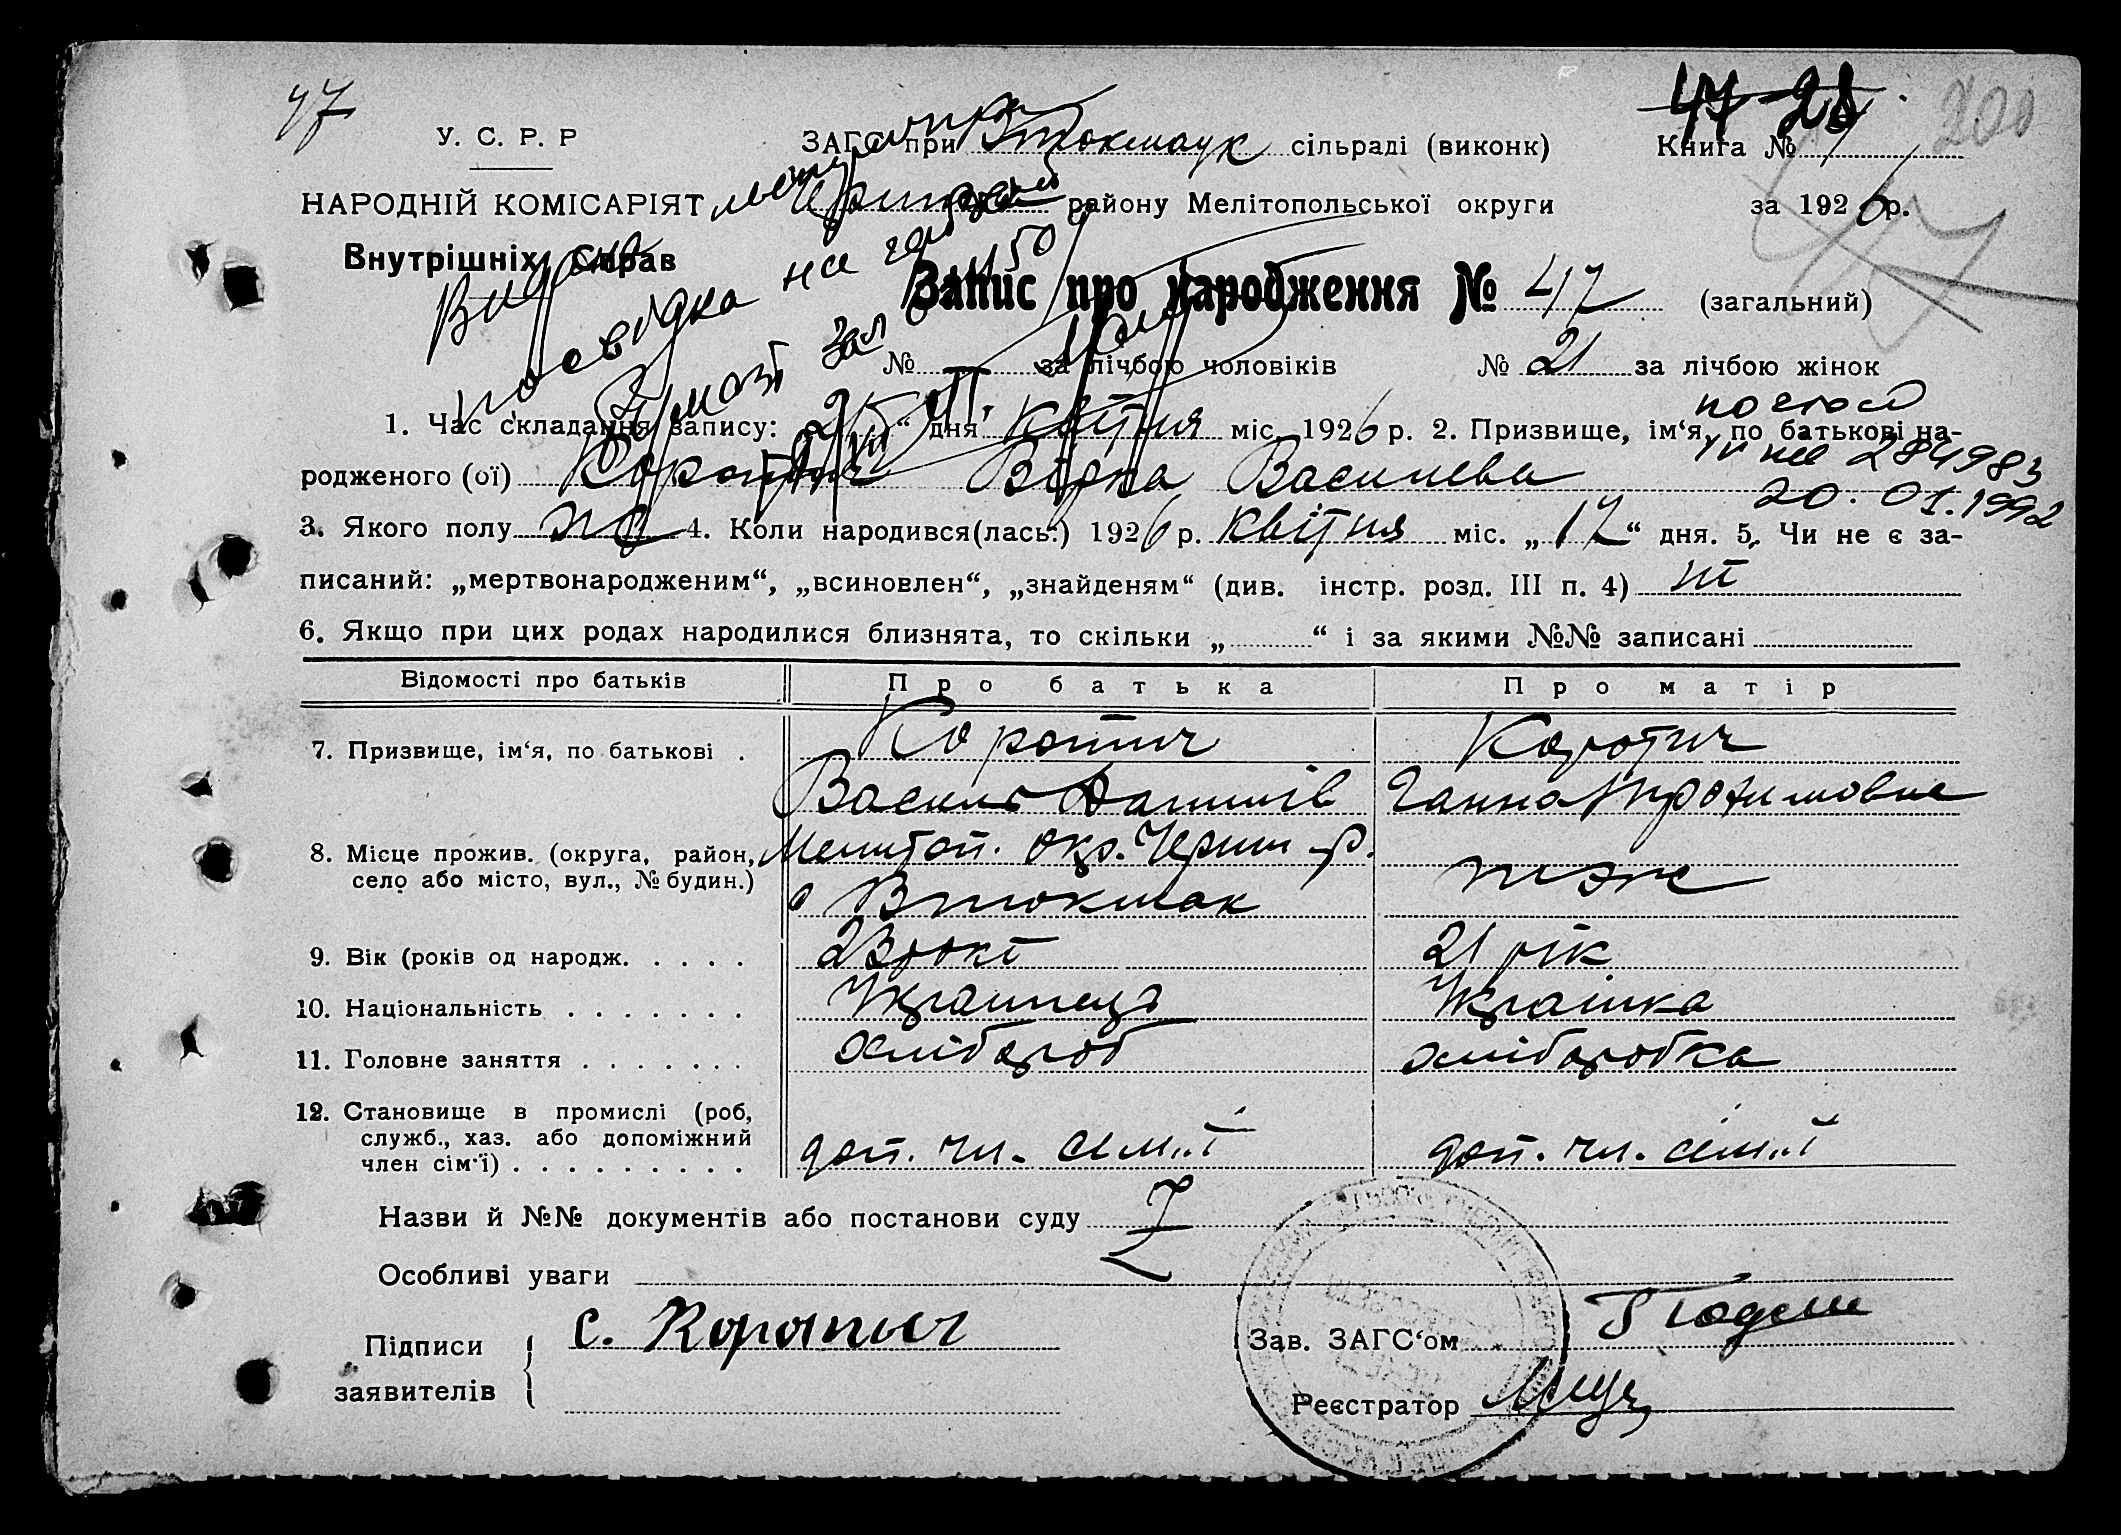 47
47-28
200
У. С. Р. Р
ЗАГС при Втокмацк сільраді (виконк)
Книга №
НАРОДНІЙ КОМІСАРІЯТ
району Мелітопольської округи
за 1926 р.
47
Внутрішніх Справ
Видана
посвідка на
Запис про народження № 47 (загальний)
№ за лічбою чоловіків № 21 за лічбою жінок
1. Час складання запису: „25“ дня квітня міс. 1926 р. 2. Призвище, ім‘я, по батькові на-
родженого (ої) Коротич Вірка Василева
284983
20.01.1992
3. Якого полу жі 4. Коли народився(лась:) 1926 р. квітня міс. „17“ дня. 5. Чи не є за-
писаний: „мертвонародженим“, „всиновлен“, „знайденям“ (див. інстр. розд. III п. 4) ні
6. Якщо при цих родах народилися близнята, то скільки „ “ і за якими №№ записані
Відомості про батьків
Про батька
Про матір
7. Призвище, ім‘я, по батькові .
Коротич
Коротич
Василь Данилів
Ганна Трохимовна
8. Місце прожив. (округа, район,
село або місто, вул., № будин.)
Мелитоп. окр. Черниг р.
с Втокмак
тэж
9. Вік (років од народж. . . . .
23 рокі
21 рік
10. Національність . . . . . . .
Українець
Українка
11. Головне заняття . . . . . . .
хлібороб
хліборобка
12. Становище в промислі (роб,
служб., хаз. або допоміжний
член сім‘ї) . . . . . . . . .
доп. чл. сем.ї
доп. чл. сім.ї
Назви й №№ документів або постанови суду
Особливі уваги
Підписи
заявителів
с. Коротыч
Зав. ЗАГС‘ом
Реєстратор